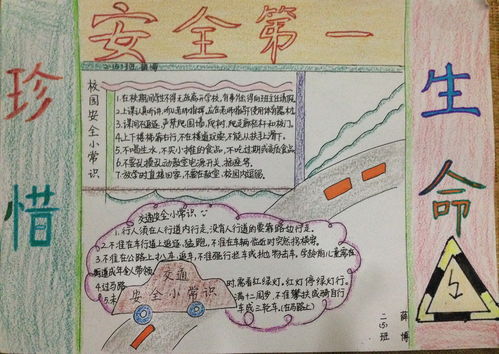 安全第一
珍惜
生命
校园安全小常识
1.在校期间学生不得无故离开学校,有事外出得向班主任请假
2.上课认真听讲,
3.课间不追逐,严禁爬围墙,爬树,爬走廊栏杆和校门。
4.上下楼梯靠右行,不在楼道玩耍,不能从扶手上滑下。
5.不喝生水,不买小摊的食品,不吃过期或变质食品
6.不要乱摸乱动教室电源开关、插座等。
7.放学时直接回家,不要在教室、校园内逗留。
交通安全小常识:
1.行人须在人行道内行走,没有人行道的要靠路边行走。
2.不准在车行道上追逐、猛跑,不准在车辆临近时突然拐横穿。
3.不准在公路上扒车、追车,不准强行拦车或抛物击车。学龄前儿童需在
街道或
成年人带领
4.过马路 时,需看红绿灯,红灯停绿灯行。
5.未 满十二周岁,不准攀扶或骑自行
车或三轮车,(在马路上)
交通
安全小常识
二(5)班
薛博